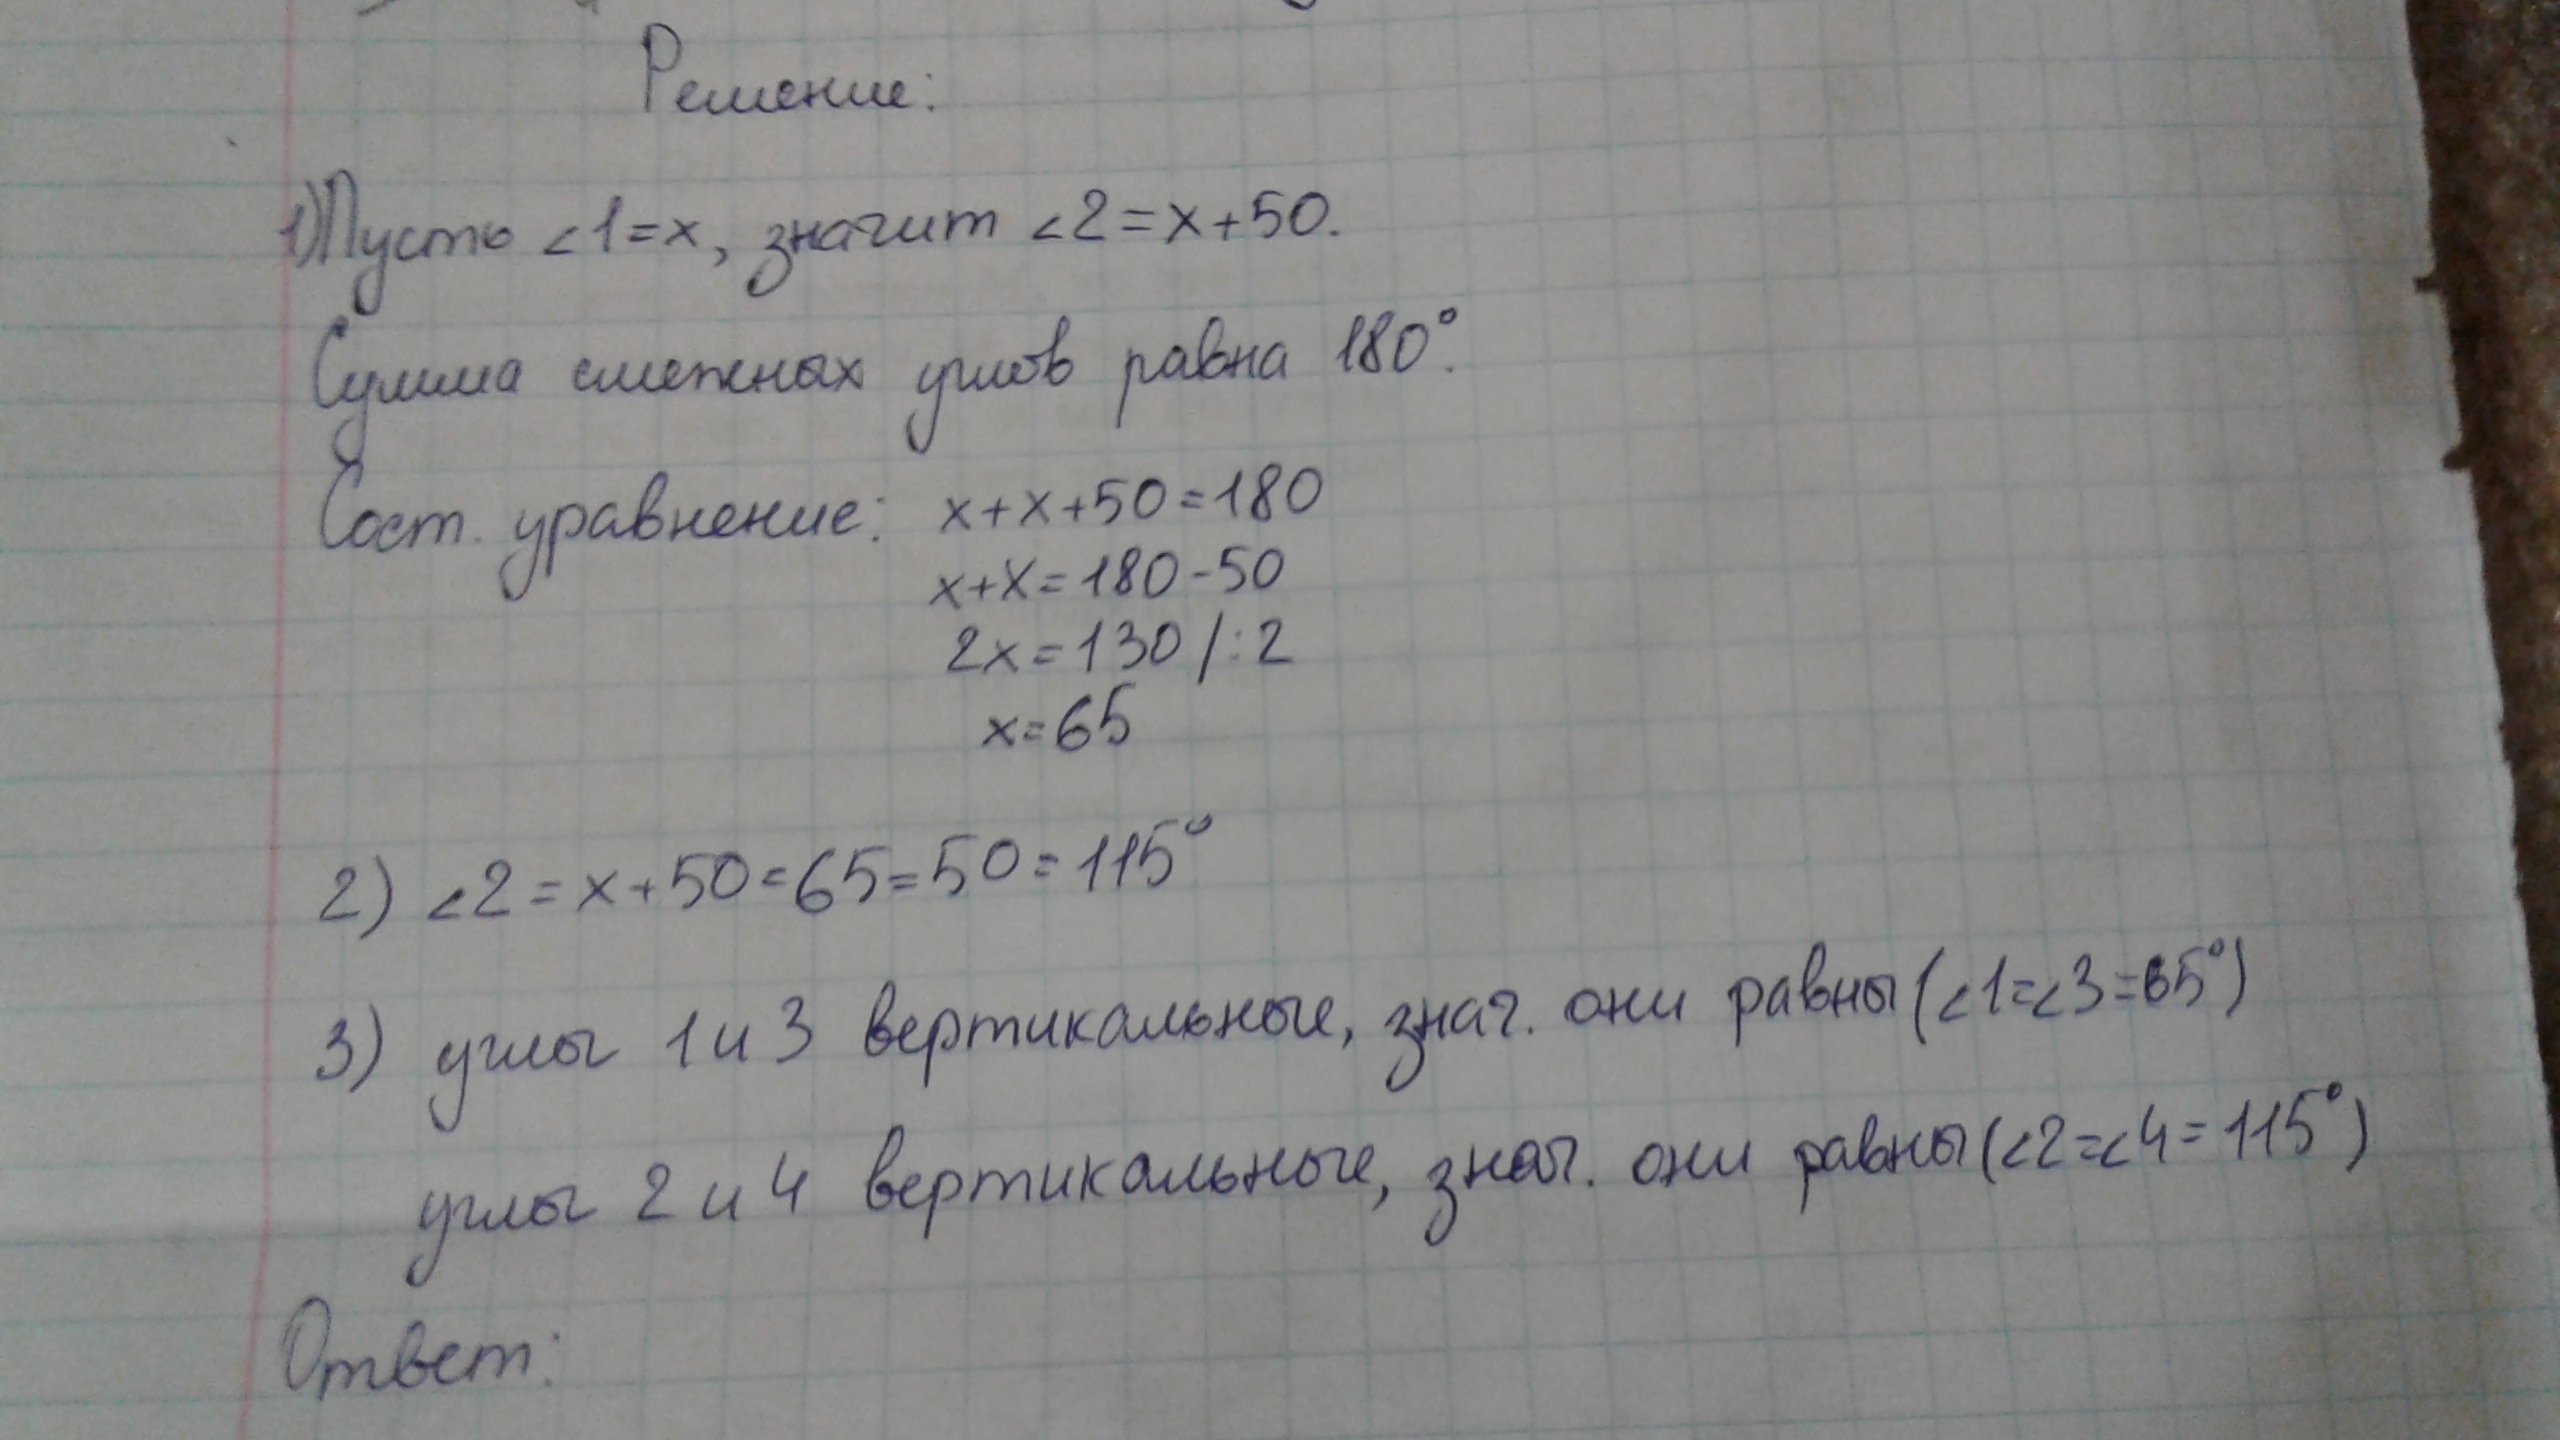 Решение:
1) Пусть <1=x, значит <2=x+50.
Сумма смежных углов равна 180°.
Сост. уравнение: x+x+50=180
x+x=180-50
2x=130/:2
x=65
2) <2=x+50=65=50=115°
3) углы 1 и 3 вертикальные, знач. они равны (<1=<3=65°)
углы 2 и 4 вертикальные, знач. они равны (<2=<4=115°)
Ответ: